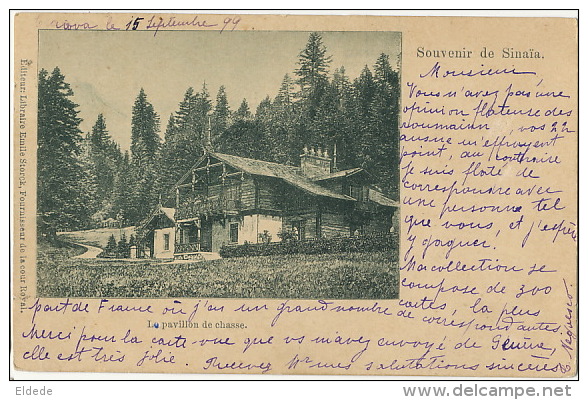 Craiova le 15 Septembre 99.
Souvenir de Sinaïa.
Monsieur,
Vous n'avez pas une
opinion flateuse des
roumains, vos 22
ans ne m'effrayent
point, au contraire
je suis flaté de
correspondre avec
une personne tel
que vous, et j'espère
y gagner.
Ma collection se
compose de 300
cartes, la plus
part de France où j'ai un grand nombre
de correspondantes.
Merci pour la carte-vue que vs m'avez envoyé de Genève,
elle est très jolie. Recevez Mr mes salutations sincères
Le pavillon de chasse.
Editeur: Libraire Emile Storck, Fournisseur de la cour Royal.
Eldede
delcampe.net